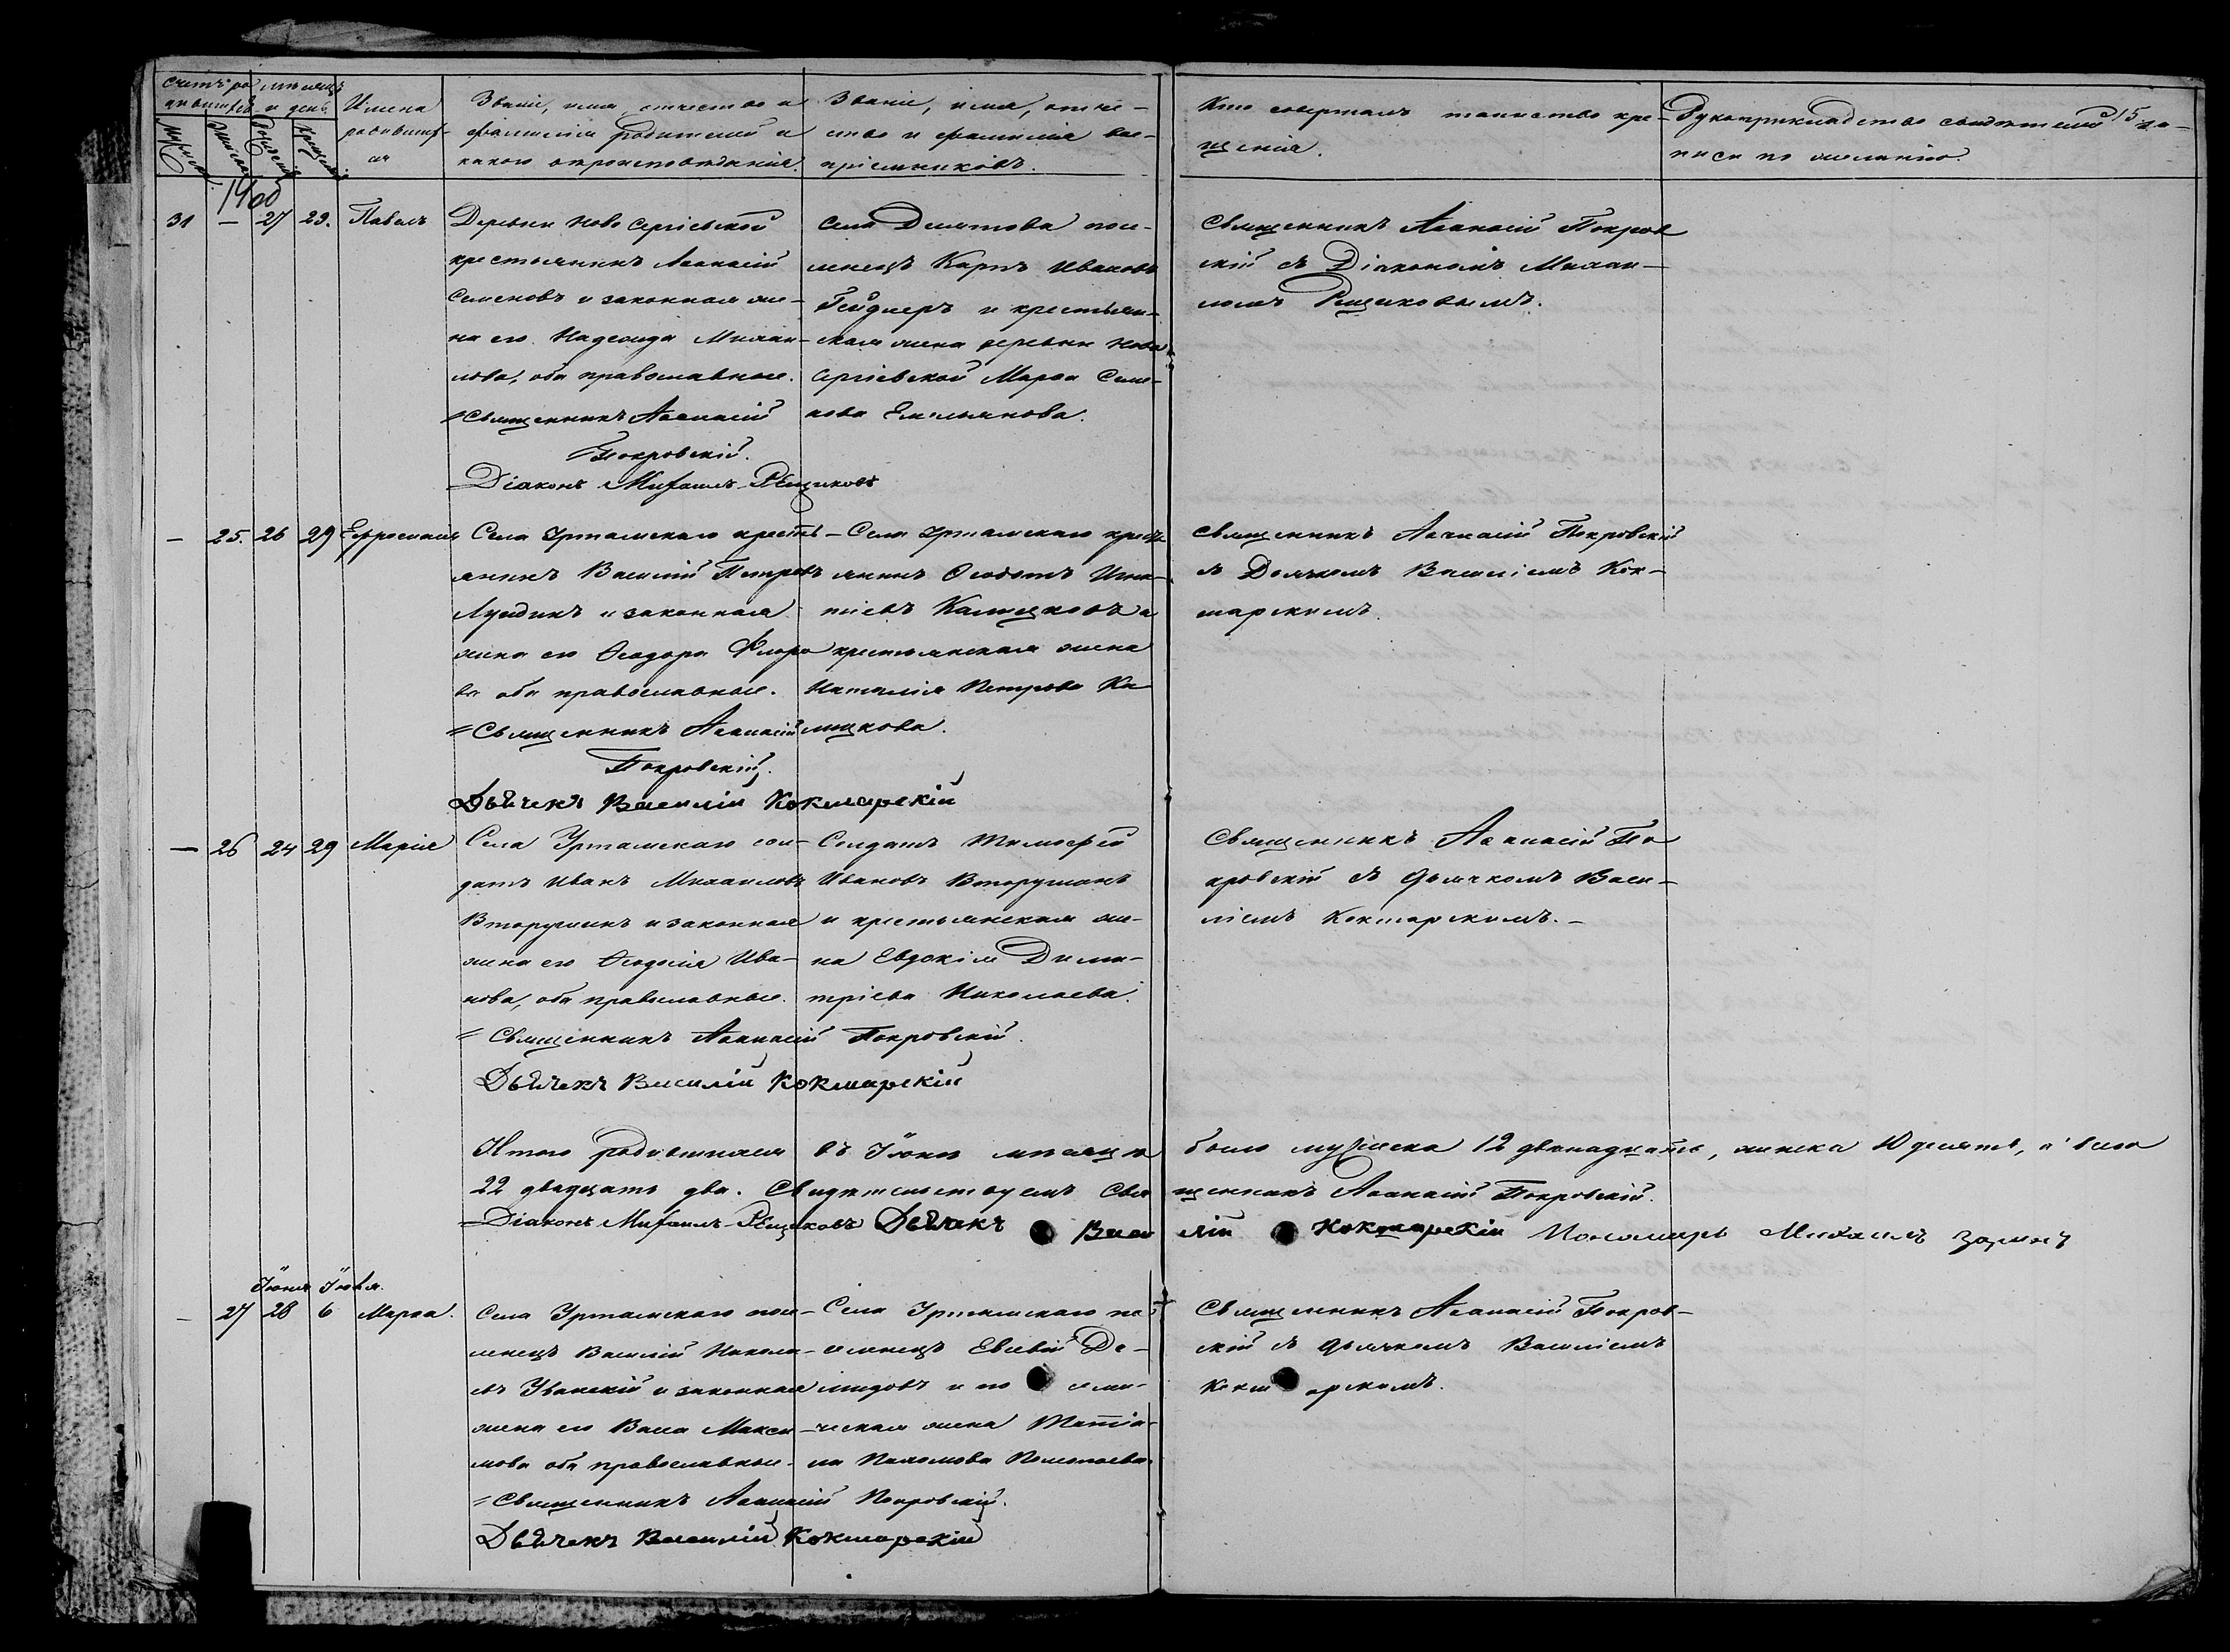 Счетъ ро- мѣсяцъ
дившихся и день
Мужеска
Женска
Рожденія
Крещенія
Имена
родивших-
ся
Званіе, имя, отчество и
фамилія родителей и
какого вѣроисповѣданія.
Званіе, имя, отче-
ство и фамилія вос-
пріемниковъ.
Кто совершалъ таинство кре-
щенія.
Рукоприкладство свидѣтелей за-
писи по желанію.
15
31 — 27 29. Павелъ
Деревни Ново Сергіевской
крестьянинъ Аѳанасій
Семеновъ и законная же-
на его Надежда Михаи-
лова, оба православные.
Священникъ Аѳанасій
Покровскій.
Діаконъ Михаилъ Рещиковъ
Села Десятова посе-
ленецъ Карпъ Ивановъ
и крестьян-
ская жена деревни Ново
Сергіевской Марѳа Семе-
нова Емельянова.
Священникъ Аѳанасій Покров
скій съ Діакономъ Михаи-
ломъ Рещиковымъ.
— 25. 26 29 Евфросинія
Села Уртамскаго кресть-
янинъ Василій Петровъ
и законная
жена его Ѳеодора Флоро
ва оба православные.
Священникъ Аѳанасій
Покровскій.
Дьячекъ Василій Кокшарскій
Села Уртамскаго кресть
янинъ Ѳеодотъ Игна-
тіевъ Калицковъ и
крестьянская жена
Наталія Петрова Ка
лицкова.
Священникъ Аѳанасій Покровскій
съ Дьячкомъ Василіемъ Кок-
шарскимъ.
— 26 24 29 Марія
Села Уртамскаго сол-
датъ Иванъ Михаиловъ
Вторушинъ и законная
жена его Ѳеодосія Ива-
нова, оба православные.
Священникъ Аѳанасій Покровскій.
Дьячекъ Василій Кокшарскій
Солдатъ Тимофей
Ивановъ Вторушинъ
и крестьянская же-
на Евдокія Дими-
тріева Николаева.
Священникъ Аѳанасій По
кровскій съ дьячкомъ Васи-
ліемъ Кокшарскимъ. —
Итого родившихся въ Іюнѣ мѣсяцѣ было мужеска 12 двѣнадцать, женска 10 десять, а всего
22 двадцать два. Свидѣтельствуемъ Священникъ Аѳанасій Покровскій.
Діаконъ Михаилъ Рещиковъ Дьячекъ Василій Кокшарскій Пономарь Михаилъ
Іюня Іюля.
— 27 28 6 Марѳа.
Села Уртамскаго посе-
ленецъ Василій Никола-
евъ и законная
жена его Васса Макси-
мова оба православные.
Священникъ Аѳанасій Покровскій.
Дьячекъ Василій Кокшарскій
Села Уртамскаго по
селенецъ Евсевій Де-
мидовъ и по селен-
ческая жена Татіа-
на Пахомова
Священникъ Аѳанасій Покров-
скій съ дьячкомъ Василіемъ
Кокшарскимъ.